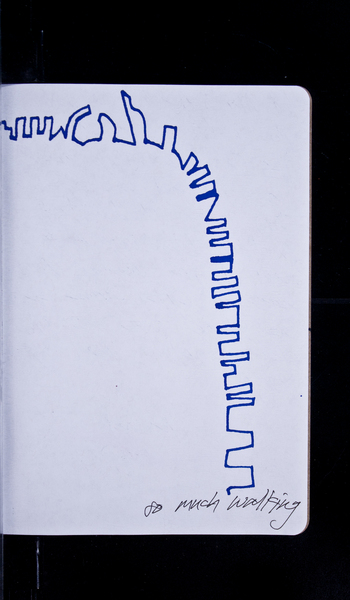 so much walking